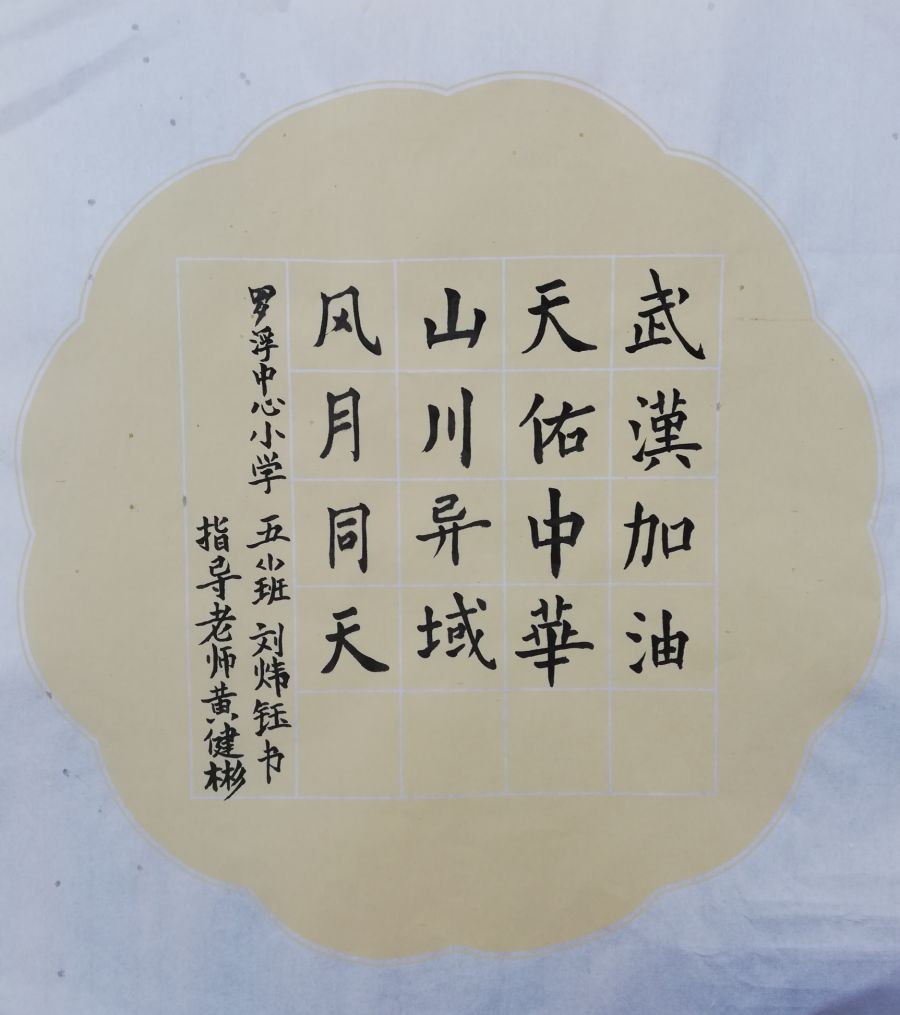 武漢加油
天佑中華
山川异域
风月同天
罗浮中心小学 五小班 刘炜钰书
指导老师黄健彬